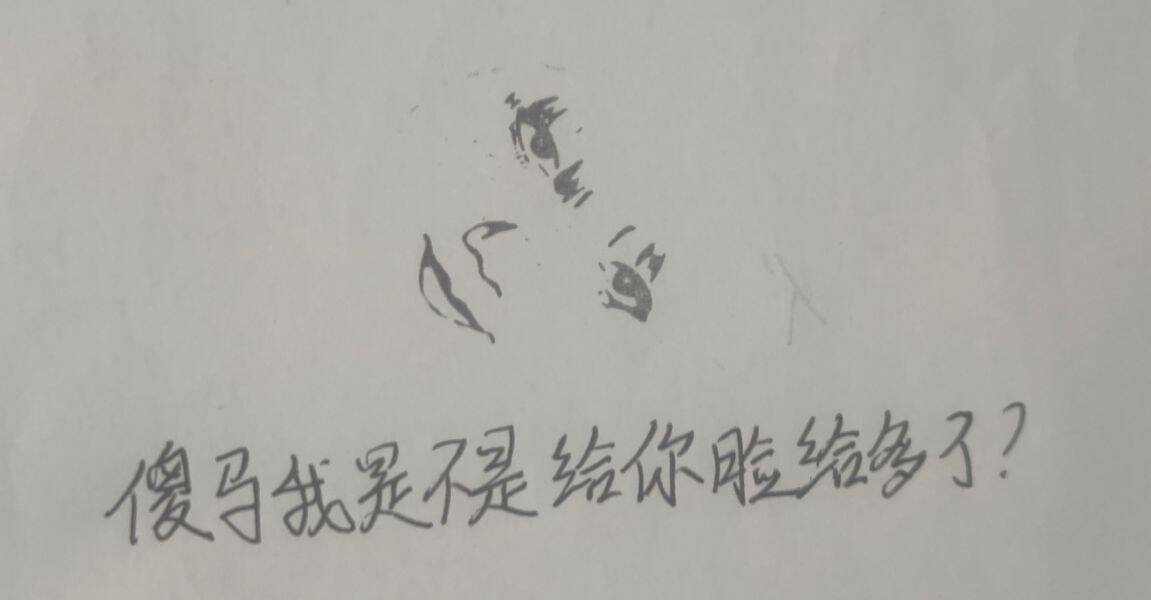 傻马我是不是给你脸给多了?